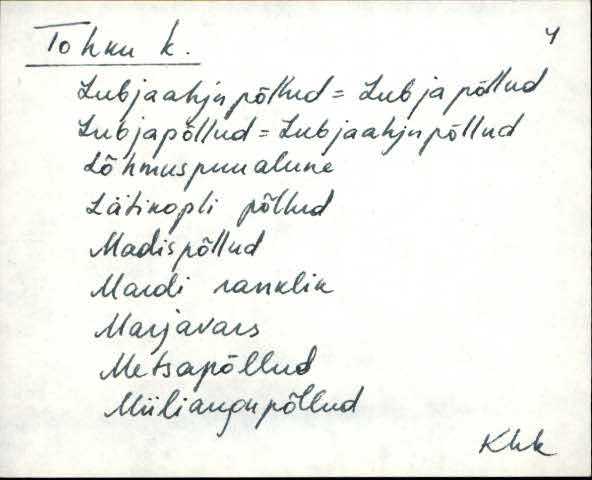 Tohku k. 4
Lubjaahju põllud = Lubja põllud
Lubjapõllud = Lubjaahju põllud
Lõhmuspuualune
Lätikopli põllud
Madis põllud
Mardi ranklik
Marjavars
Metsapõllud
Miiliaugu põllud
Khk